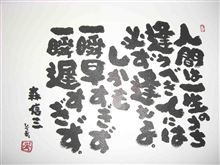 人間は一生のうち
逢うべき人には
必ず逢える。
しかも
一瞬早すぎず
一瞬遅すぎず。
森信三